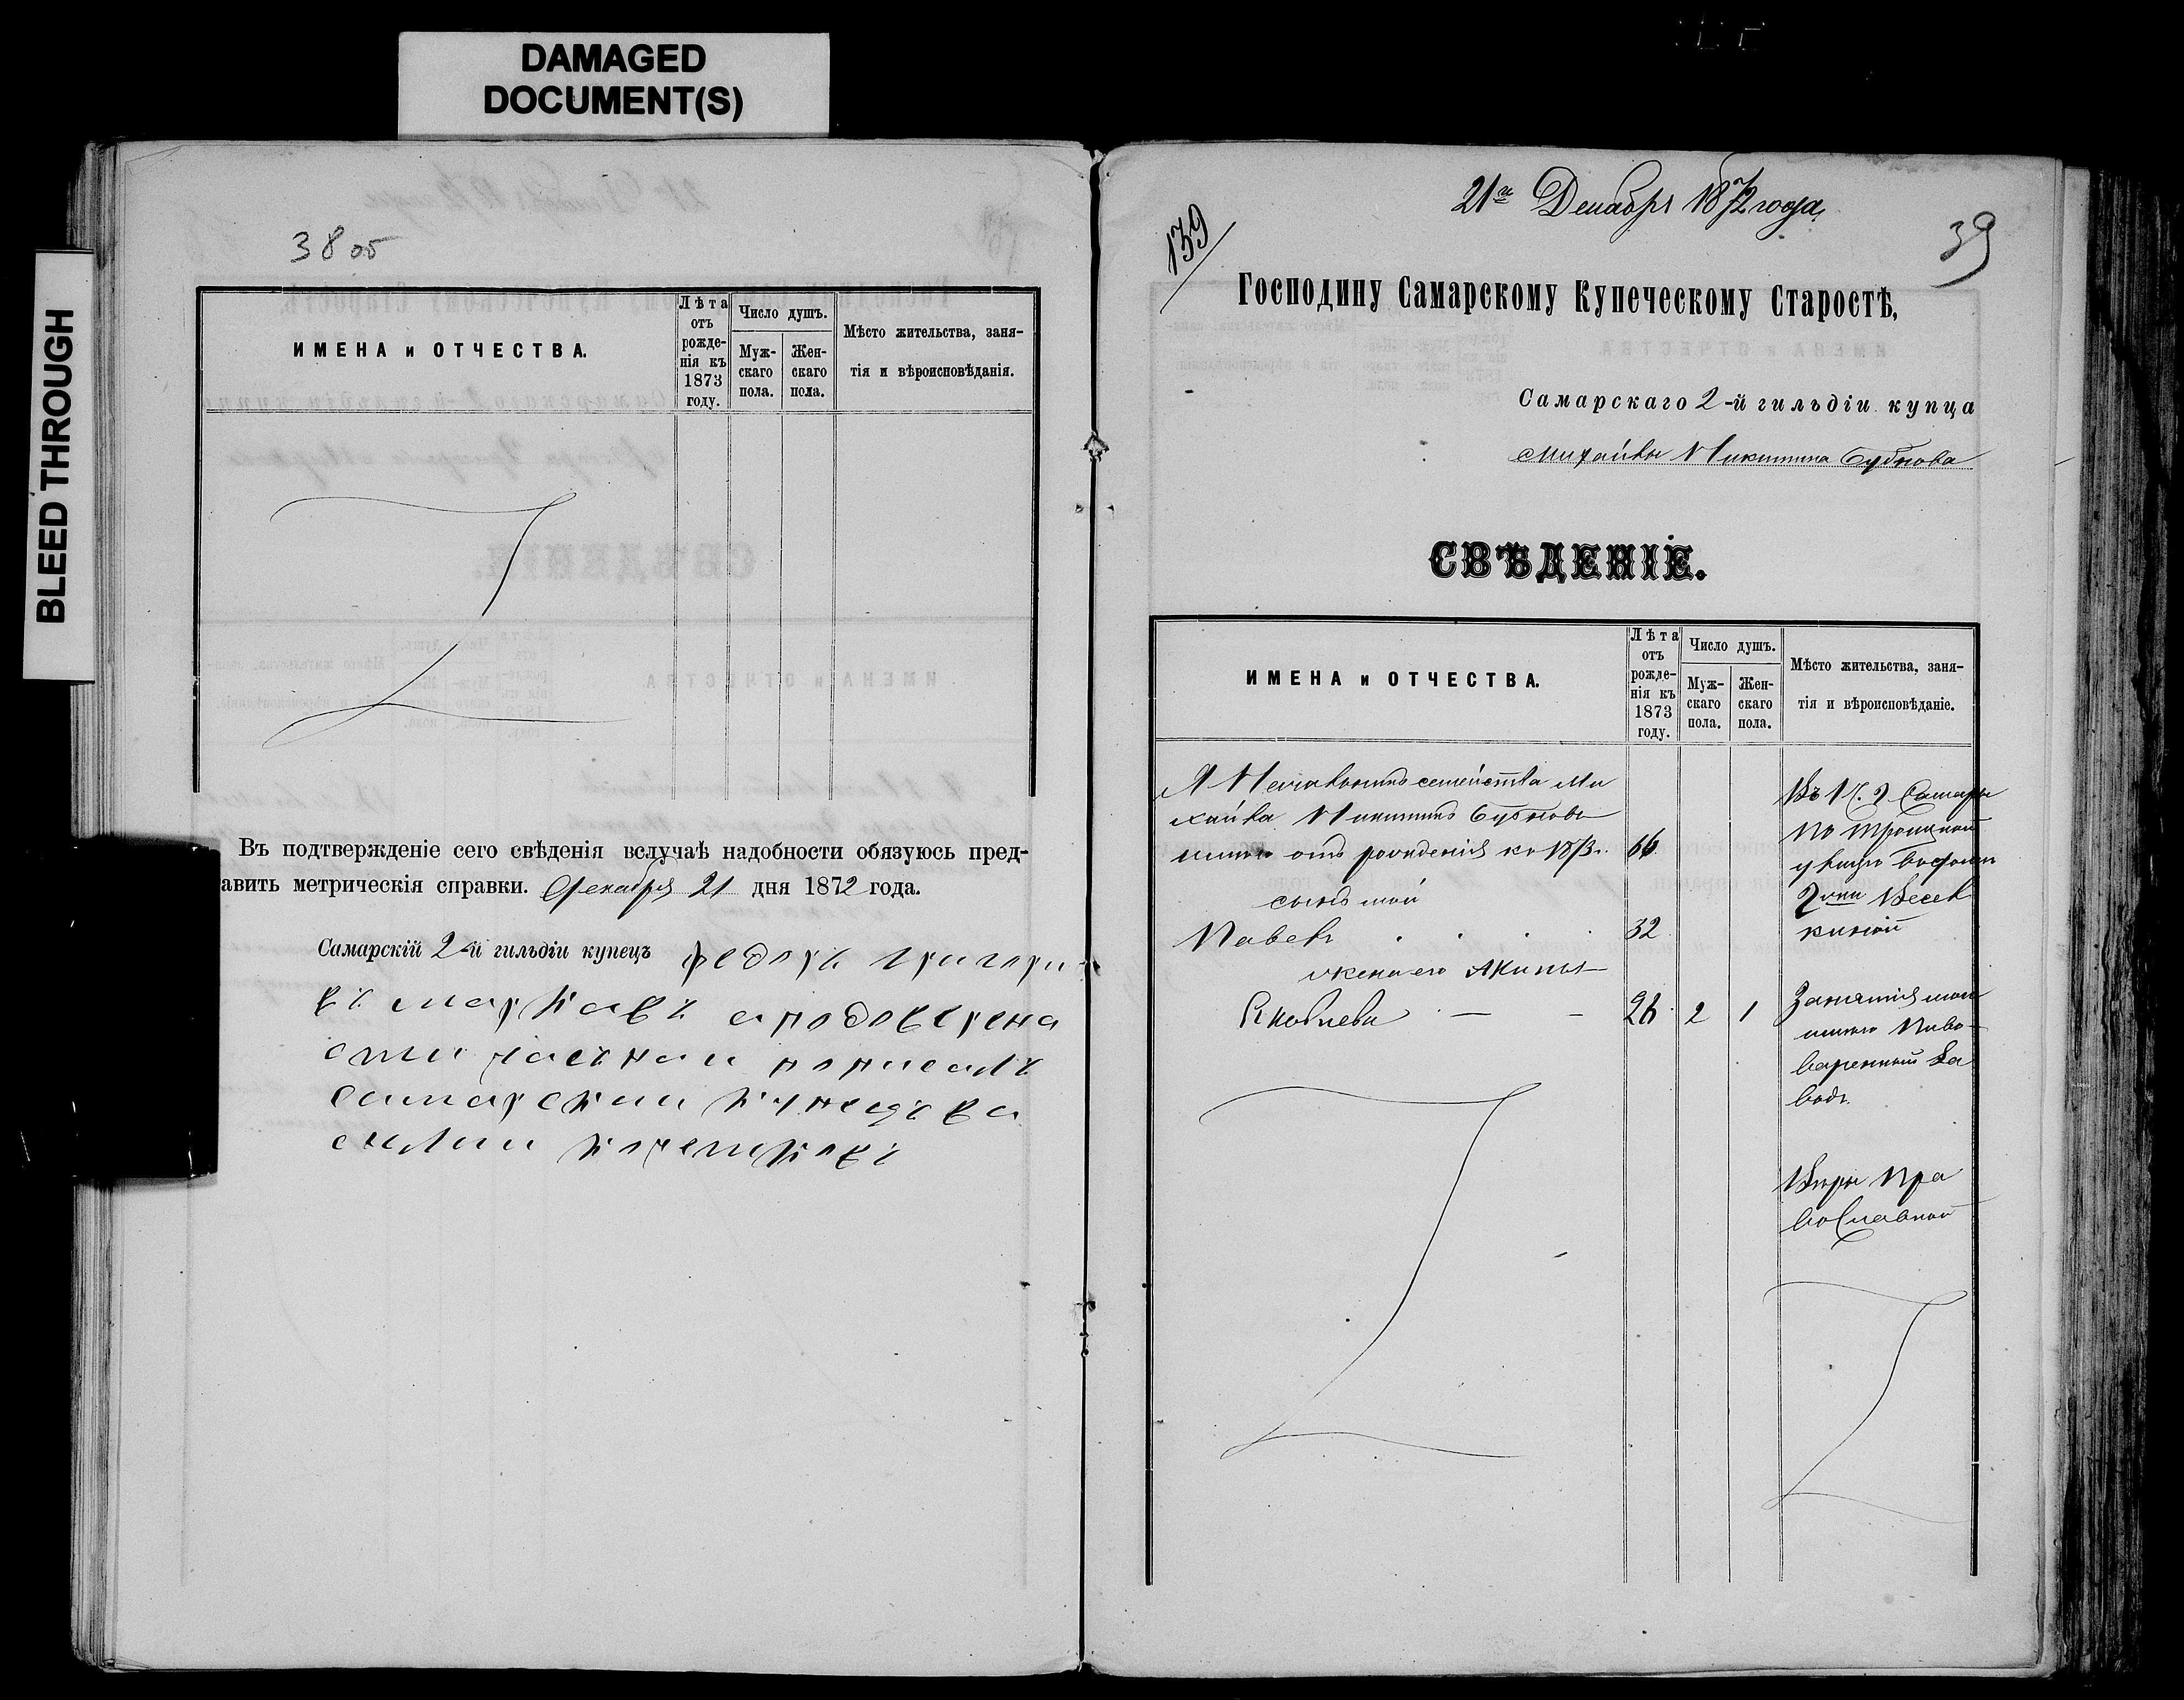 DAMAGED
DOCUMENT(S)
BLEED THROUGH
38 об
ИМЕНА и ОТЧЕСТВА.
Лѣта отъ рожде-нія къ 1873 году.
Число душъ.
Муж-скаго пола.
Жен-скаго пола.
Мѣсто жительства, заня-
тія и вѣроисповѣданія.
Въ подтвержденіе сего свѣденія вслучаѣ надобности обязуюсь пред-
авить метрическія справки. Декабря 21 дня 1872 года.
Самарскій 2-й гильдіи купецъ Федоръ Григори
въ марковъ
самарскои купецъ ва
силии
21го Декабря 1872 года
139
39
Господину Самарскому Купеческому Старостѣ,
Самарскаго 2-й гильдіи купца
Михайлы Никитина Бубнова
СВѢДЕНІЕ.
ИМЕНА и ОТЧЕСТВА.
Лѣта отъ рожде-нія къ 1873 году.
Число душъ.
Муж-скаго пола.
Жен-скаго пола.
Мѣсто жительства, заня-
тія и вѣроисповѣданіе.
Я семейства Ми
хайла Никитинъ Бубновъ
отъ рожденія къ 1873 г. 66
сынъ мой
Павелъ 32
жена его
Яковлева 26 2 1
Въ Самары
по Троицкой
Занятія
Пиво-
варенный За
водъ.
Вѣры Пра
вославной